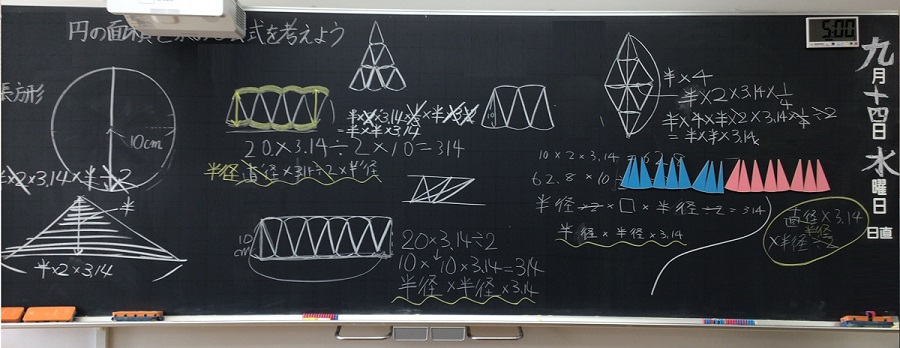 円の面積を求める公式を考えよう
長方形
10cm
半×2×3.14×半÷2
半
半×2×3.14
20×3.14÷2×10=314
半径 直径×3.14÷2×半径
半×半×3.14
10
10
cm
20×3.14÷2
10×10×3.14=314
半径×半径×3.14
半×4
半×2×3.14×1/4
半×4×半×2×3.14×1/4÷2
=半×半×3.14
10×2×3.14=62.8
62.8×10
半径÷2×□×半径÷2=314
半径×半径×3.14
直径×3.14
半径
×半径÷2
5:00
九月十四日水曜日
日直